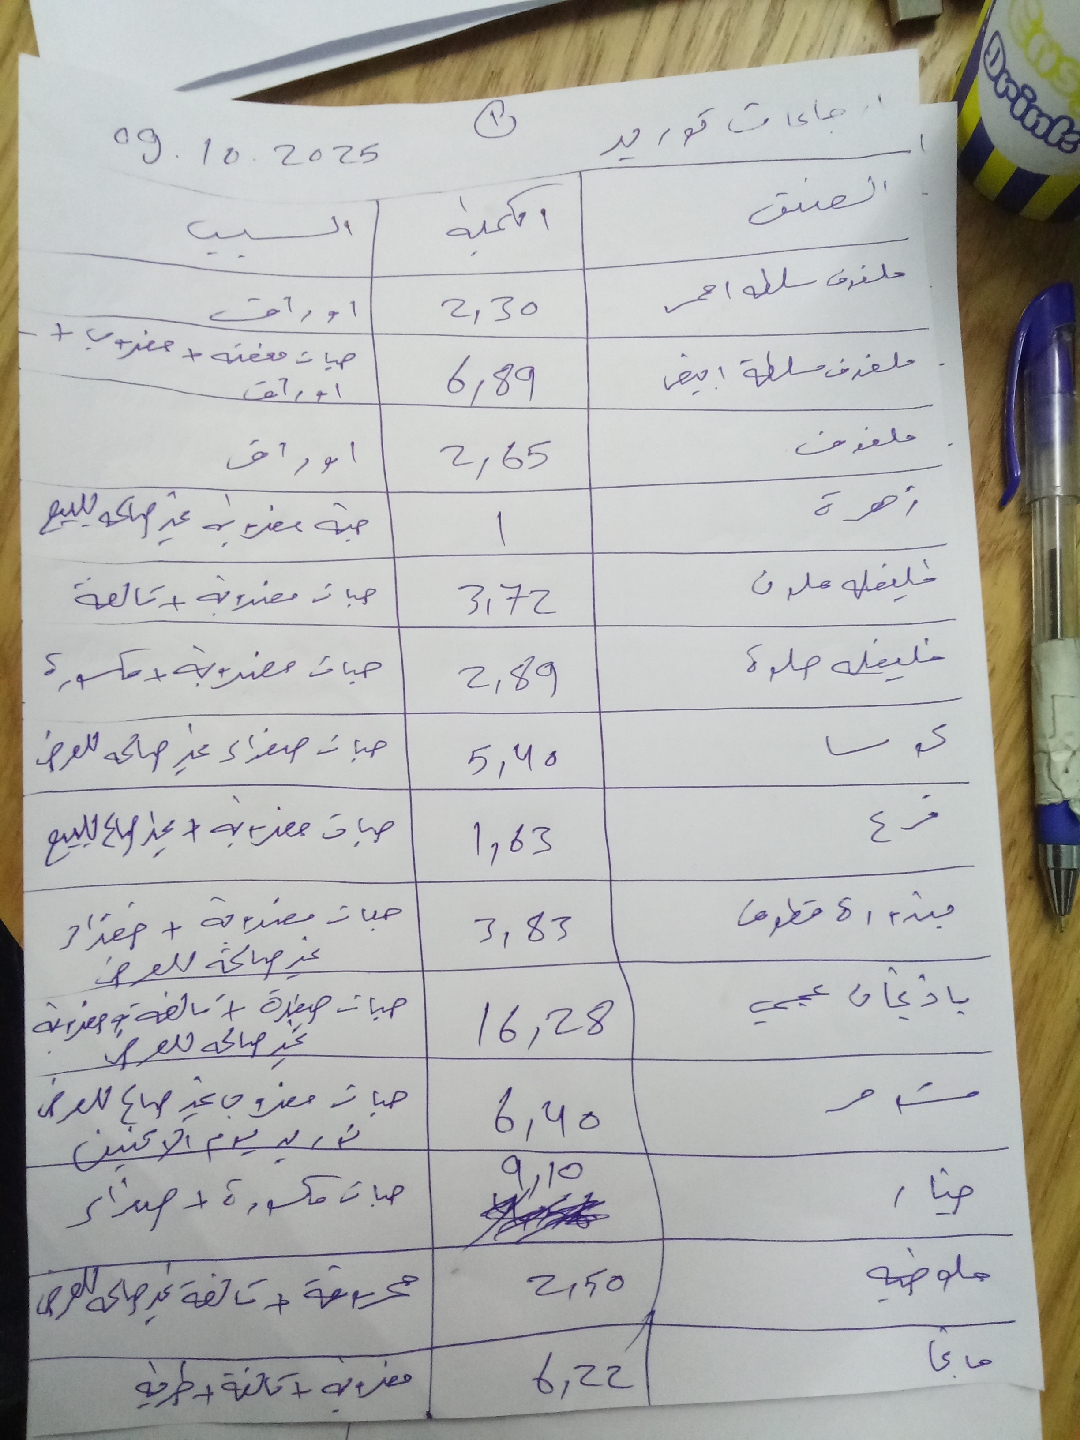 ارجاعات توريد ① 09.10.2025
الصنف الكمية السبب
ملفوف سلطه احمر 2,30 اوراق
ملفوف سلطة ابيض 6,89 حبات معفنه + مضروب +
اوراق
ملفوف 2,65 اوراق
زهرة 1 حبة مضروبة غير صالحه للبيع
فليفله ملون 3,72 حبات مضروبة + تالفة
فليفله حلوة 2,89 حبات مضروبة + مكسورة
كوسا 5,40 حبات صفراء غير صالحه للعرض
قرع 1,63 حبات مضروبة + غير صالح للبيع
بندورة قطوف 3,83 حبات مضروبة + خضراء
غير صالحة للعرض
باذنجان عجمي 16,28 حبات صغيرة + تالفة + مضروبة
غير صالحه للعرض
شمندر 6,40 حبات مضروب غير صالح للعرض
توريد يوم الاثنين
خيار 9,10 حبات مكسورة + صفراء
ملوخيه 2,50 محروقة + تالفة غير صالحه للعرض
مانجا 6,22 مضروبة + تالفة + طرية
Drink